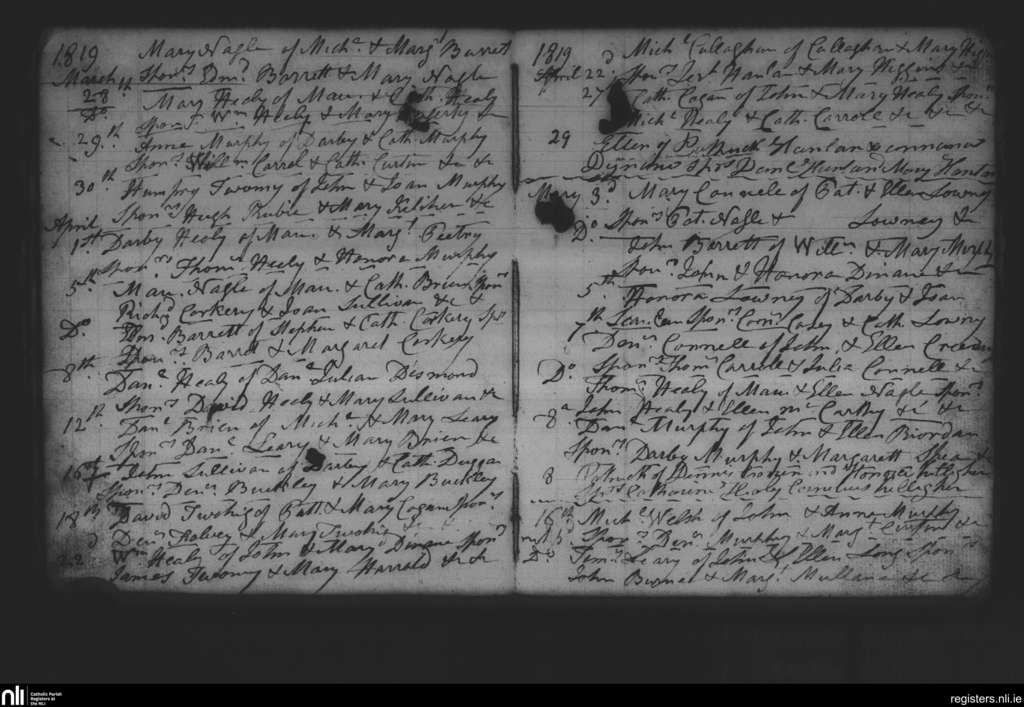 1819 Mary Nagle of Michl & Margt Barrett
March Sponrs Edmd Barrett & Mary Nagle
28th Mary Healy of Mau. & Cath. Healy
Do Sponrs Wm Healy & Mary &c
29th Anne Murphy of Darby & Cath. Murphy
Sponrs Willm Carrol & Cath. Curtin &c &c
30th Humfry Twomy of John & Joan Murphy
Sponrs Hugh & Mary Keliher &c
April
1st Darby Healy of Mau. & Margt Peetry
Sponrs Thoms Healy & Honora Murphy
5th Mau. Nagle of Mau. & Cath. Brien Sponrs
Richd Corkery & Joan Sullivan &c &
Do Edmd Barrett of Stephen & Cath. Corkery Spo
Edmd Barrett & Margaret Corkery
8th Danl Healy of Danl Julian Desmond
Sponrs David Healy & Mary Sullivan &c
12th Danl Brien of Michl & Mary Leary
Sponrs Danl Leary & Mary Brien &c
16th John Sullivan of Darby & Cath. Duggan
Sponrs Denis Buckley & Mary Buckley
18th David Twohig of Patt & Mary Cogan Sponrs
Denis & Mary Twohig
22d Wm Healy of John & Mary Dinane Sponrs
James Twomy & Mary Harrold &c &c
1819 Michl Callaghan of Callaghan & Mary
April 22d Sponrs Hanlan & Mary Higgins &c
27th Cath. Cogan of John & Mary Healy Sponrs
Michl Healy & Cath. Carroll &c &c &c
29 Ellen of Patrick Hanlan
Sprs Danl Hanlan Mary Hanlan
May 3d Mary Connell of Pat. & Ellen Lowney
Sponrs Pat. Nagle & Lowney &c
Do John Barrett of Willm & Mary Murphy
Sponrs John & Honora Dinane &c
5th Honora Lowney of Darby & Joan
Sponrs Corns Casey & Cath. Lowney
7th Denis Connell of John & Ellen Creedon
Sponrs Thoms Carroll & Julia Connell &c
Do Thoms Healy of Mau. & Ellen Nagle Sponrs
John Healy & Ellen McCarthy &c &c
8th Danl Murphy of John & Ellen Riordan
Sponrs Darby Murphy & Margarett
8 Patrick of Dennis
Sprs Catherine Healy Cornelius Kellegher
16th Michl Welsh of John & Anne Murphy
Sponrs Denis Murphy & Margt Curtin &c
Do Timy Leary of John & Ellen Long Sponrs
John & Margt Mullane &c &c
nli
Catholic Parish
Registers at
the NLI
registers.nli.ie